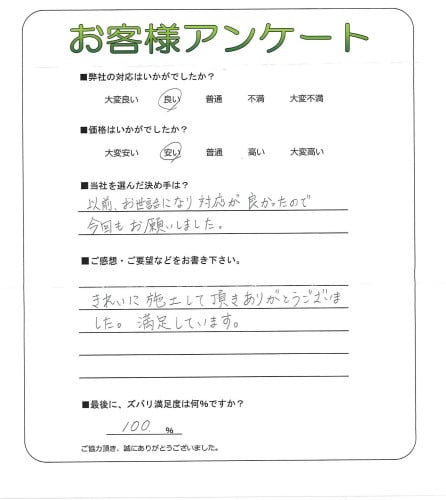 お客様アンケート
■弊社の対応はいかがでしたか？
大変良い 良い 普通 不満 大変不満
■価格はいかがでしたか？
大変安い 安い 普通 高い 大変高い
■当社を選んだ決め手は？
以前、お世話になり対応が良かったので
今回もお願いしました。
■ご感想・ご要望などをお書き下さい。
きれいに施工して頂きありがとうございま
した。満足しています。
■最後に、ズバリ満足度は何％ですか？
100 ％
ご協力頂き、誠にありがとうございました。